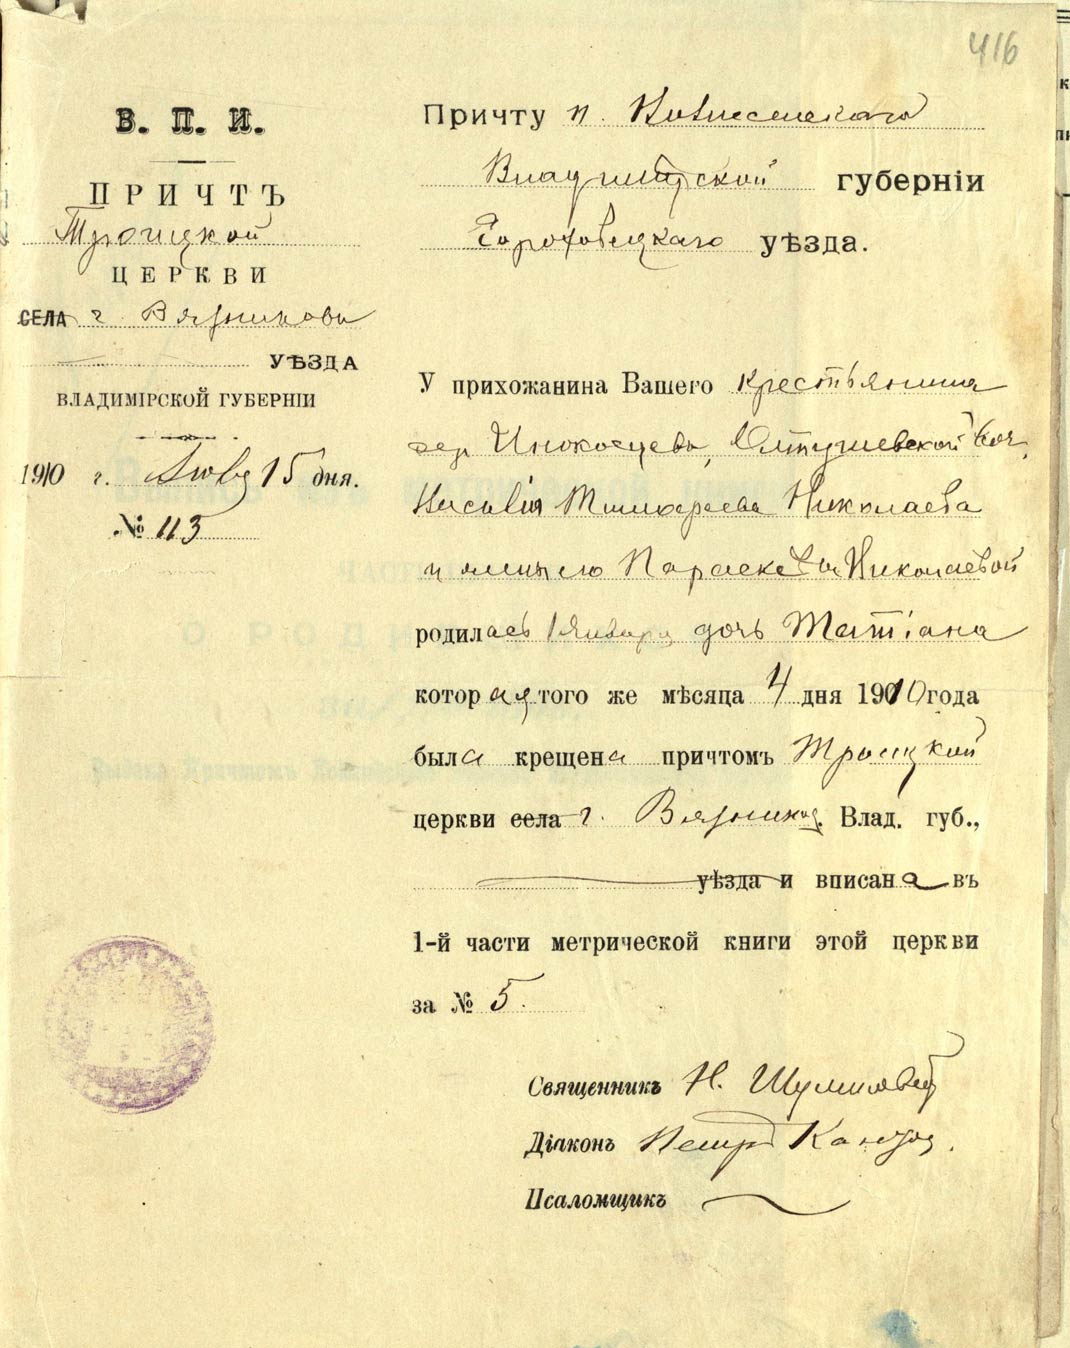 416
В. П. И.
ПРИЧТЪ
Троицкой
ЦЕРКВИ
СЕЛА г. Вязникова
УѢЗДА
ВЛАДИМІРСКОЙ ГУБЕРНІИ
1910 г. 15 дня.
№ 113
Причту п. Вознесенскаго
Владимірской губерніи
Гороховецкаго уѣзда.
У прихожанина Вашего крестьянина
дер. вол.
Николаева
и жены его Параскевы Николаевой
родилась 1 Января дочь Татіана
которая того же мѣсяца 4 дня 1910 года
была крещена причтомъ Троицкой
церкви села г. Вязников. Влад. губ.,
уѣзда и вписана въ
1-й части метрической книги этой церкви
за № 5.
Священникъ Н.
Діаконъ Петръ
Псаломщикъ